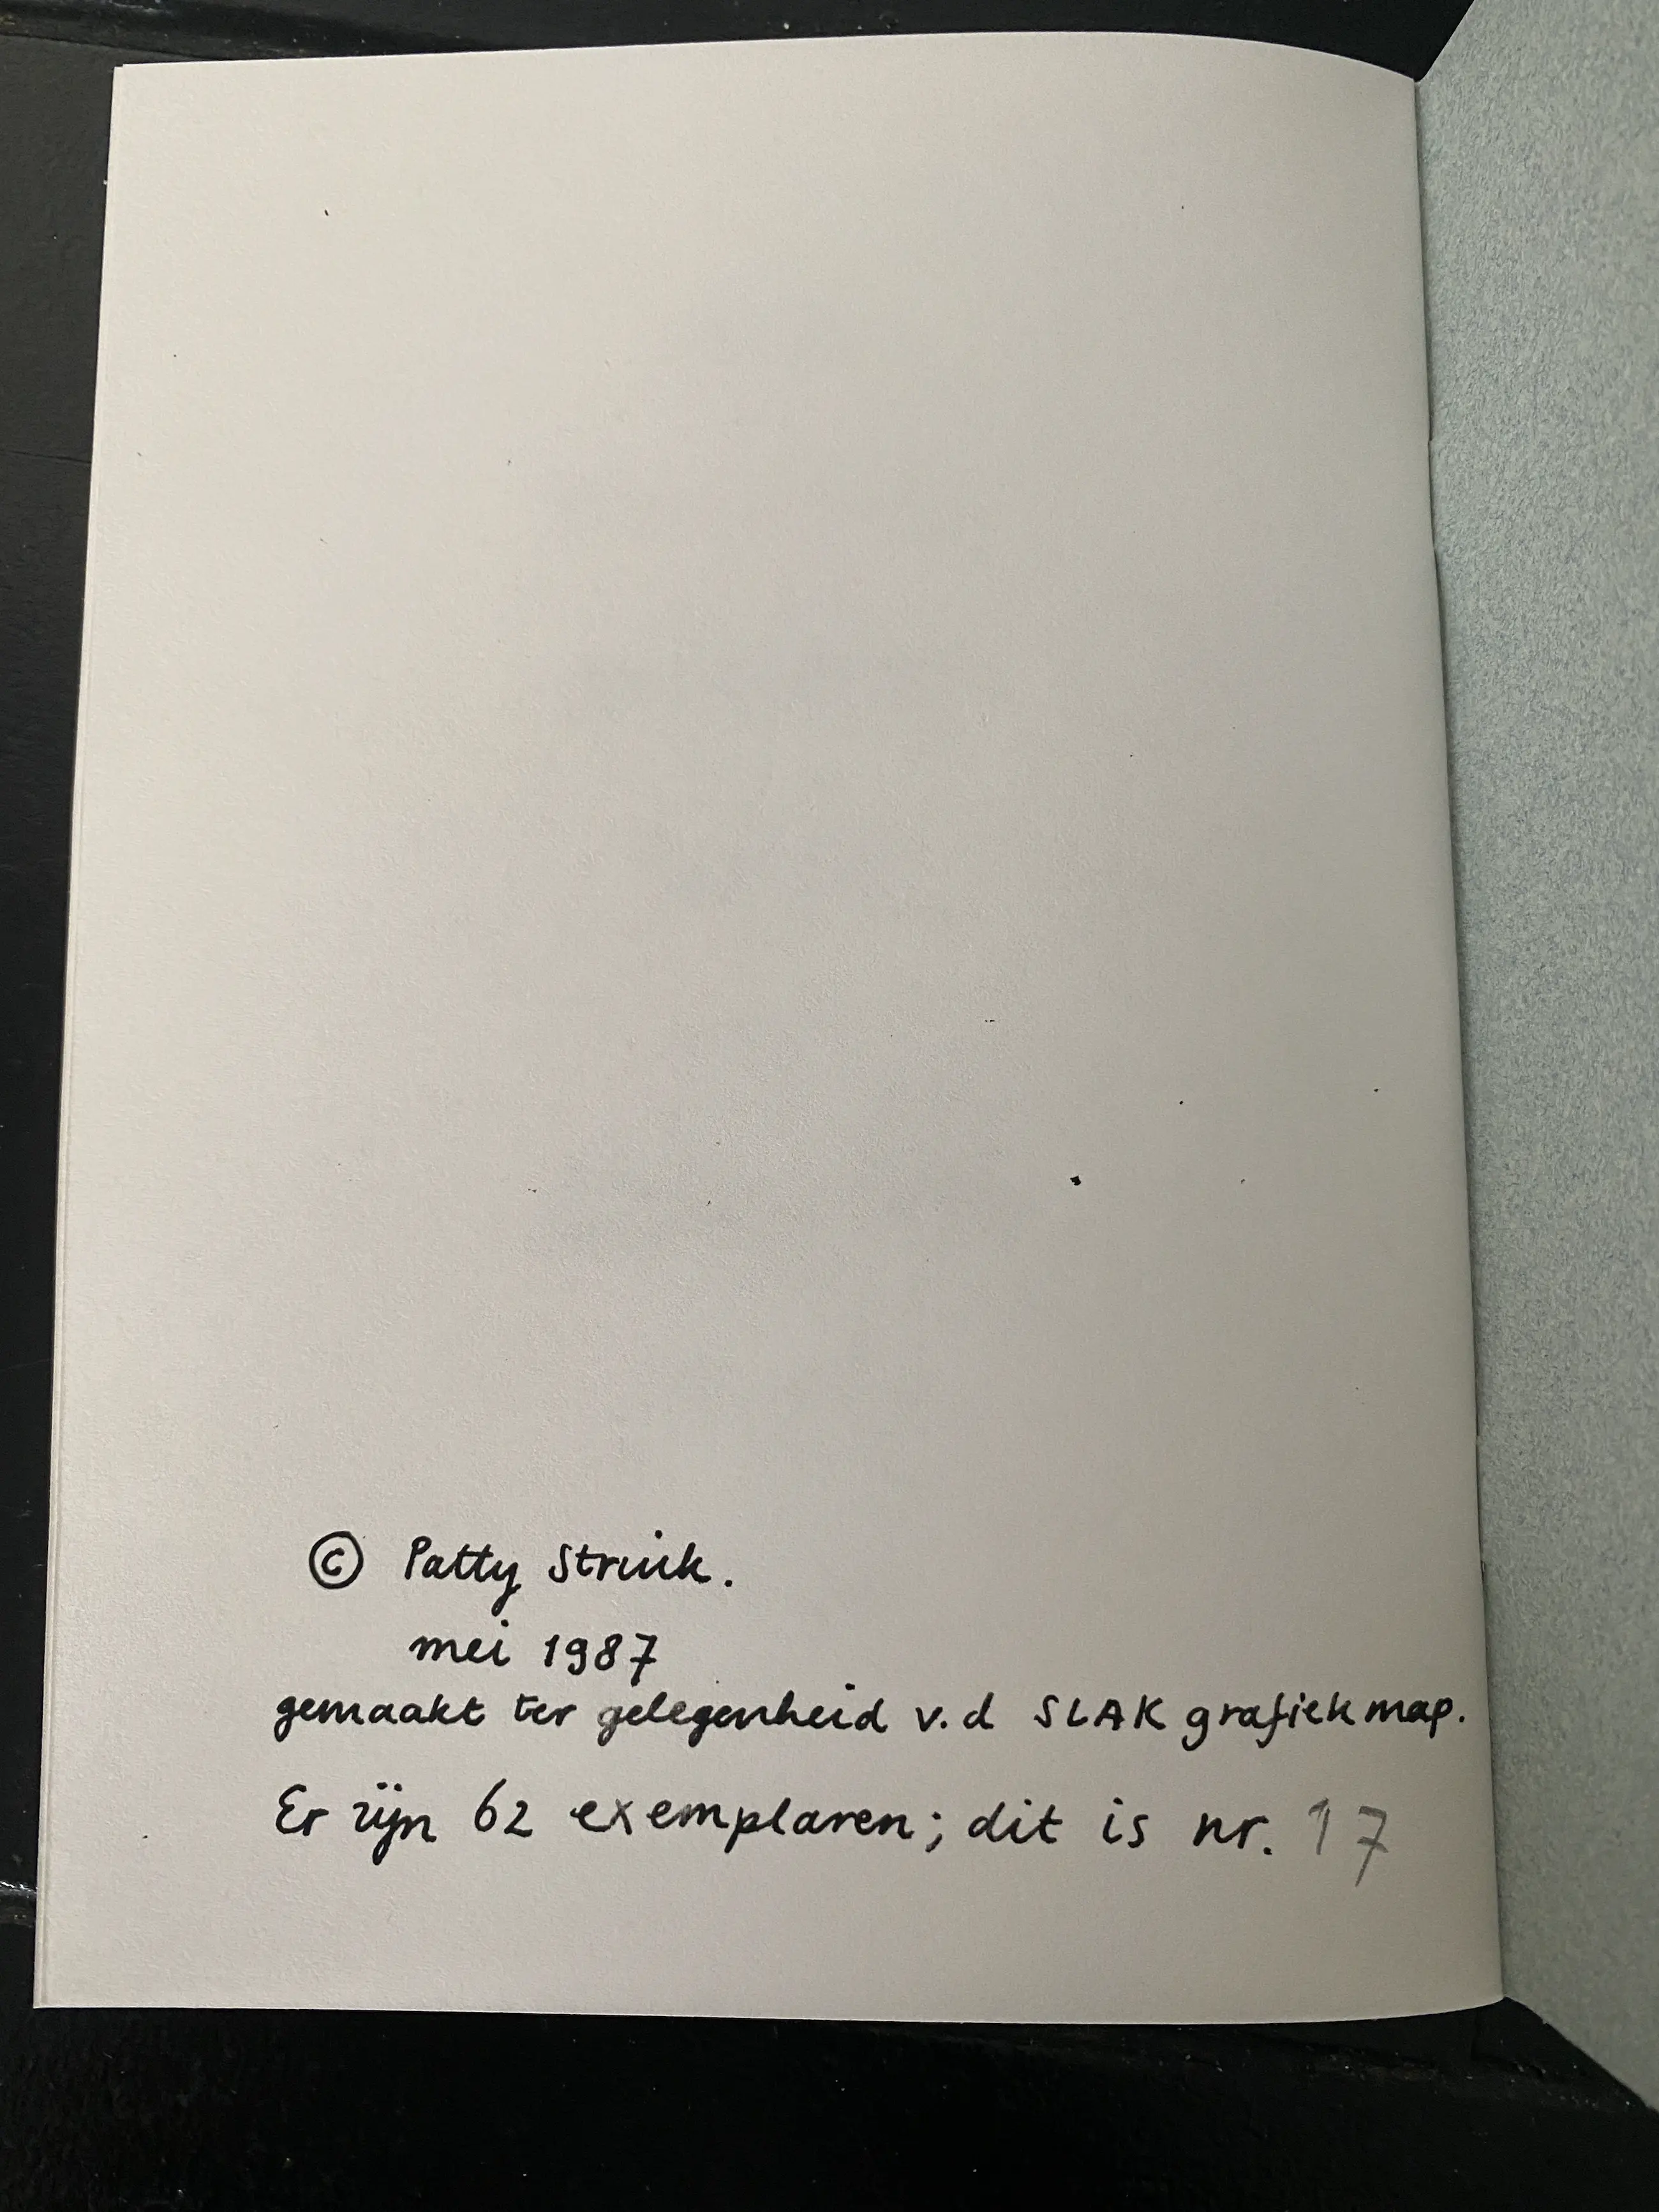 © Patty Struik.
mei 1987
gemaakt ter gelegenheid v.d SLAK grafiekmap.
Er zijn 62 exemplaren; dit is nr. 17